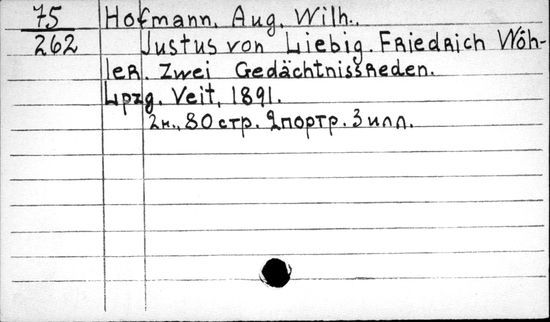 75 Hofmann, Aug. Wilh..
262 Justus von Liebig. Friedrich Wöh-
ler. Zwei Gedächtnissreden.
Lpzg. Veit, 1891.
2н., 80 стр. 2 портр. 3 илл.